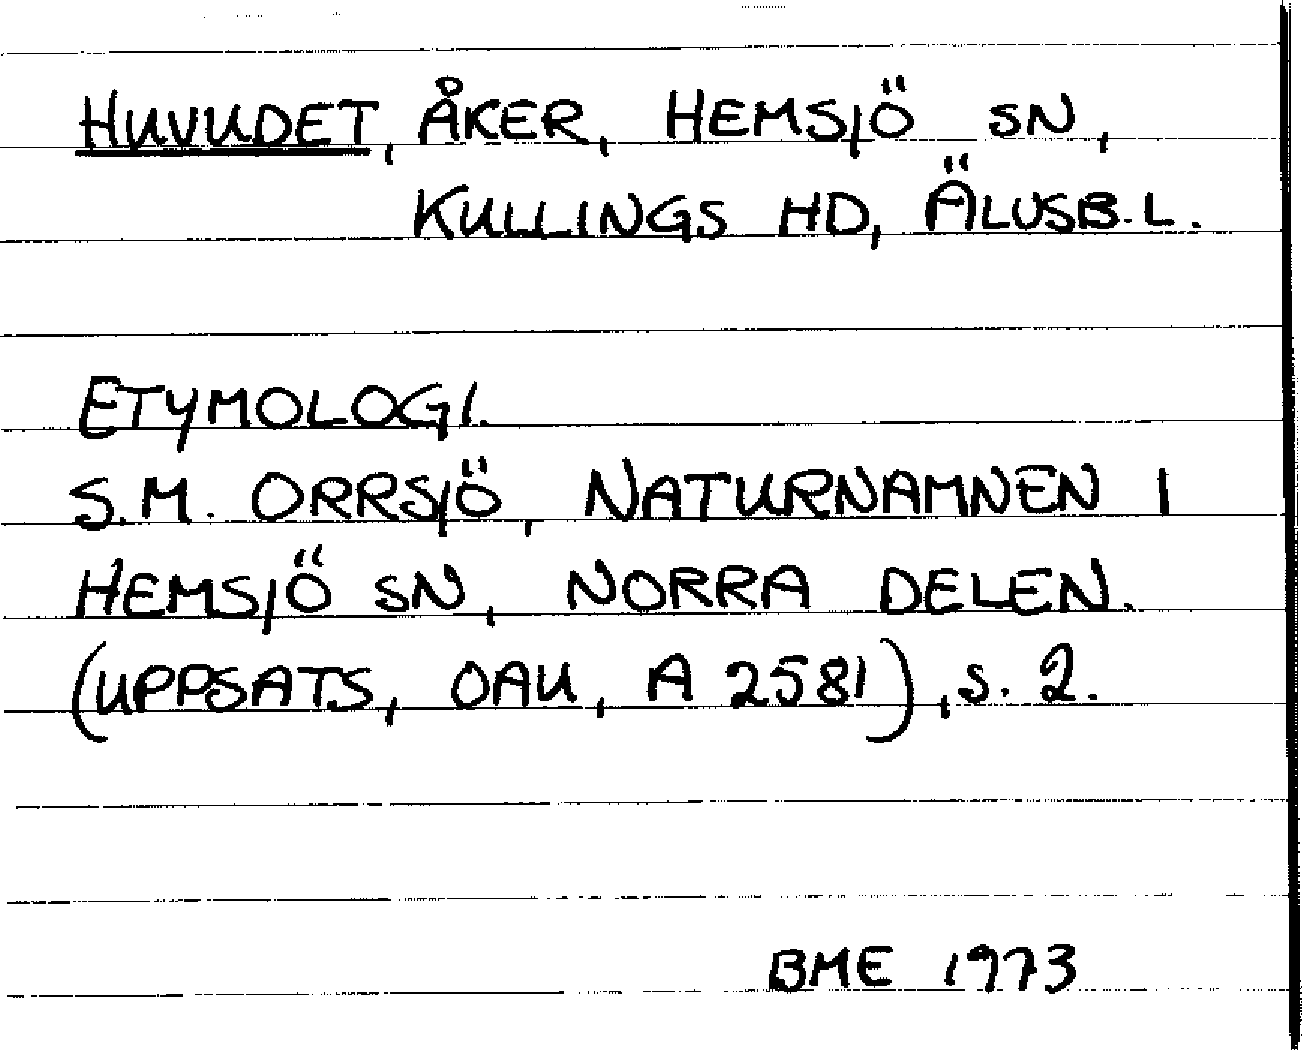 HUVUDET, ÅKER, HEMSJÖ SN,
KULLINGS HD, ÄLVSB. L.
ETYMOLOGI.
S.M. ORRSJÖ, NATURNAMNEN I
HEMSJÖ SN, NORRA DELEN.
(UPPSATS, OAU, A 2581), S. 2.
BME 1973